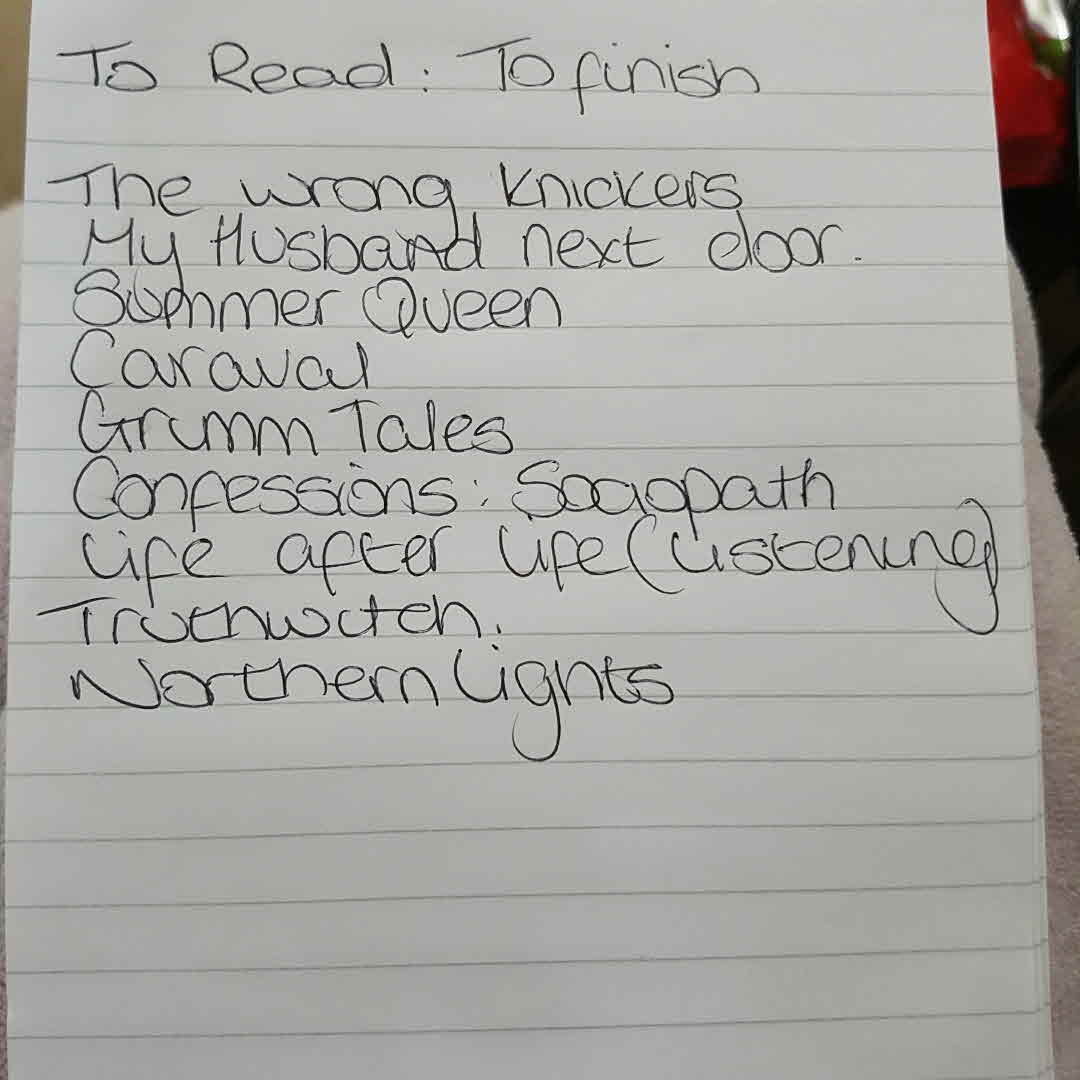 To Read: To finish
The wrong Knickers
My Husband next door.
Summer Queen
Caraval
Grimm Tales
Confessions: Sociopath
Life after life (Listening)
Truthwitch.
Northern Lights